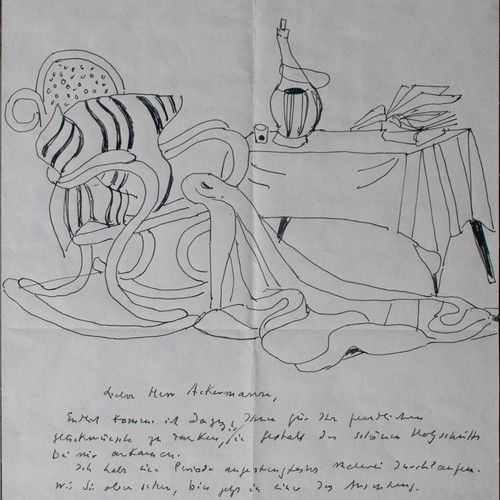 Lieber Herr Ackermann,
Endlich komme ich dazu, Ihnen für Ihre freundlichen
Glückwünsche zu danken, die in Gestalt des schönen Holzschnitts
bei mir ankamen.
Ich habe eine Periode angestrengtester Malerei durchlaufen.
Wie Sie oben sehen, bin jetzt in einer der Ausruhung.